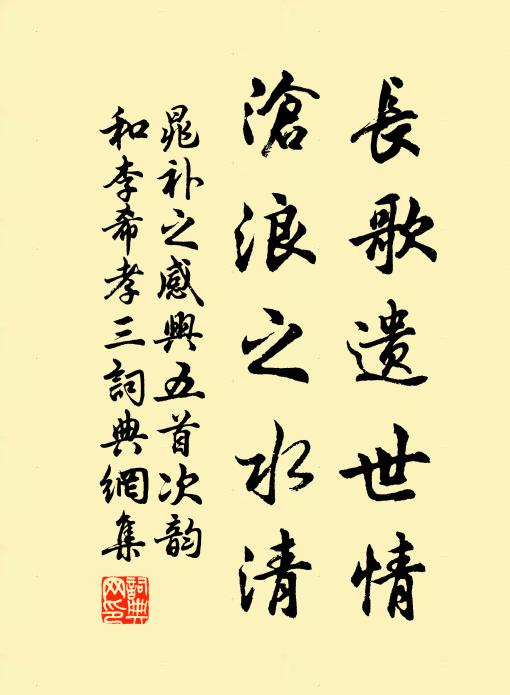 長歌遺世情
滄浪之水清
晁补之感興五首次韵
和李希孝三詞典網集
詞典網印